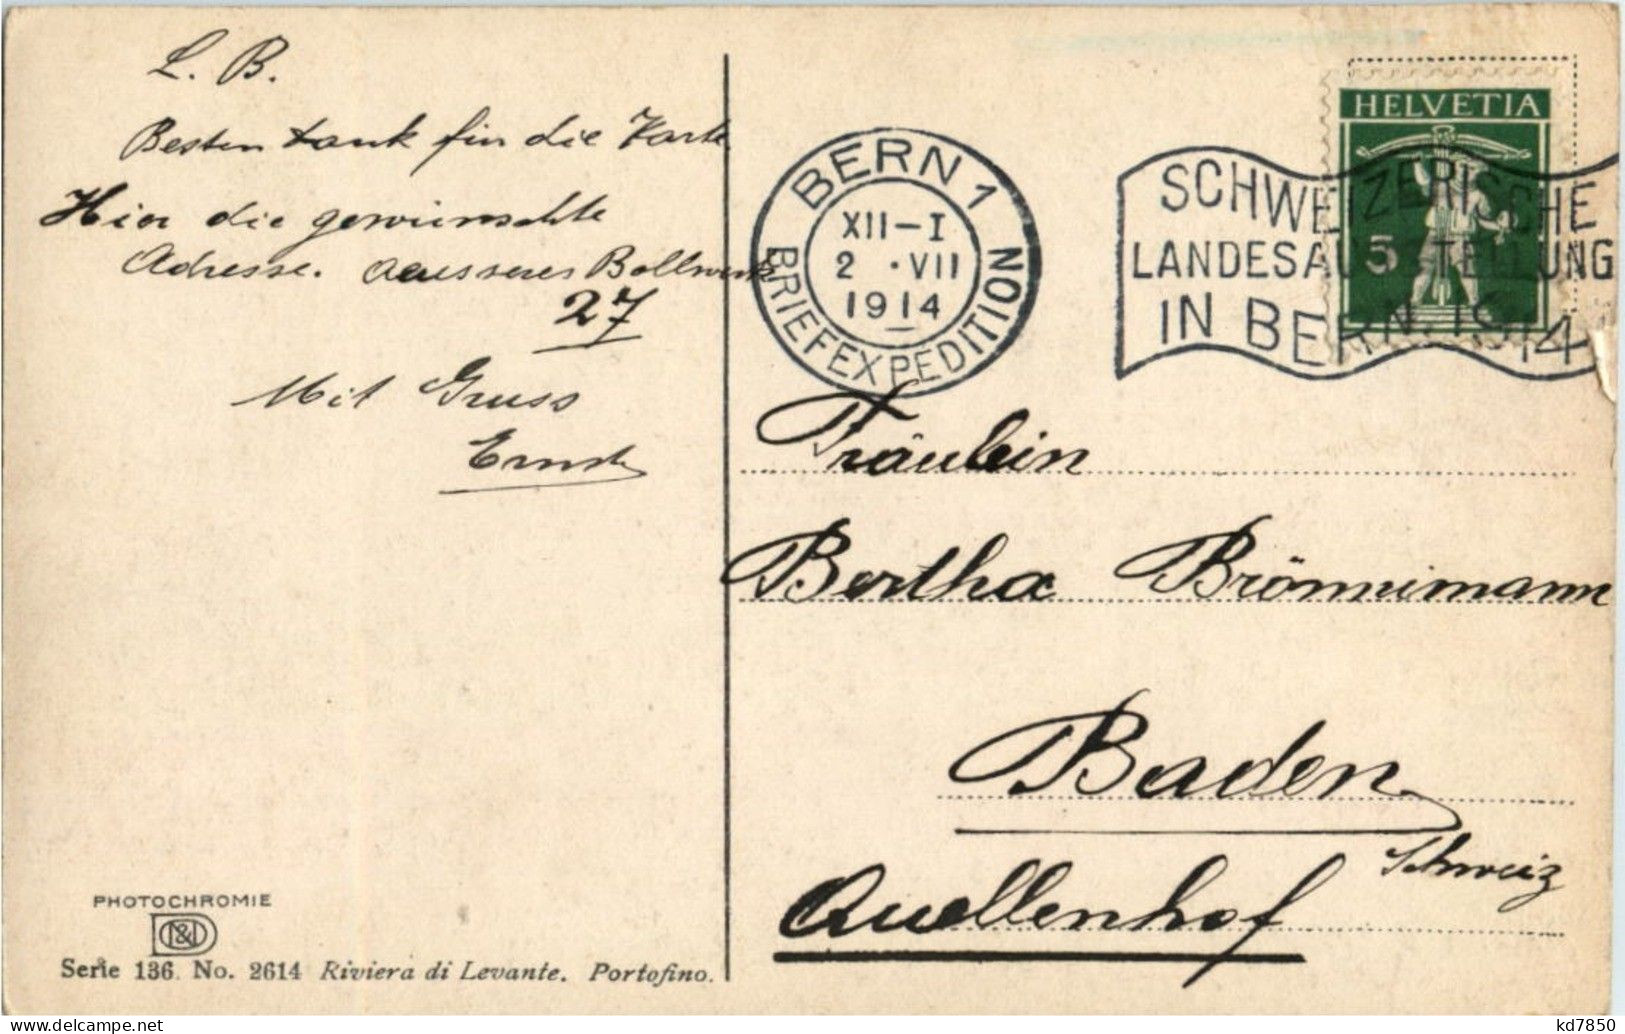 L. B.
Besten tank für die Karte
Hier die gewünschte
Adresse. Aeusseres Bollwerk
27
Mit Gruss
Ernst
PHOTOCHROMIE
D&D
Serie 136. No. 2614 Riviera di Levante. Portofino.
BERN 1
XII-I
2 . VII
1914
BRIEFEXPEDITION
SCHWEIZERISCHE
LANDESAUSSTELLUNG
IN BERN. 1914
HELVETIA
5
Fräulein
Bertha Brönnimann
Baden
Schweiz
Quellenhof
kd7850